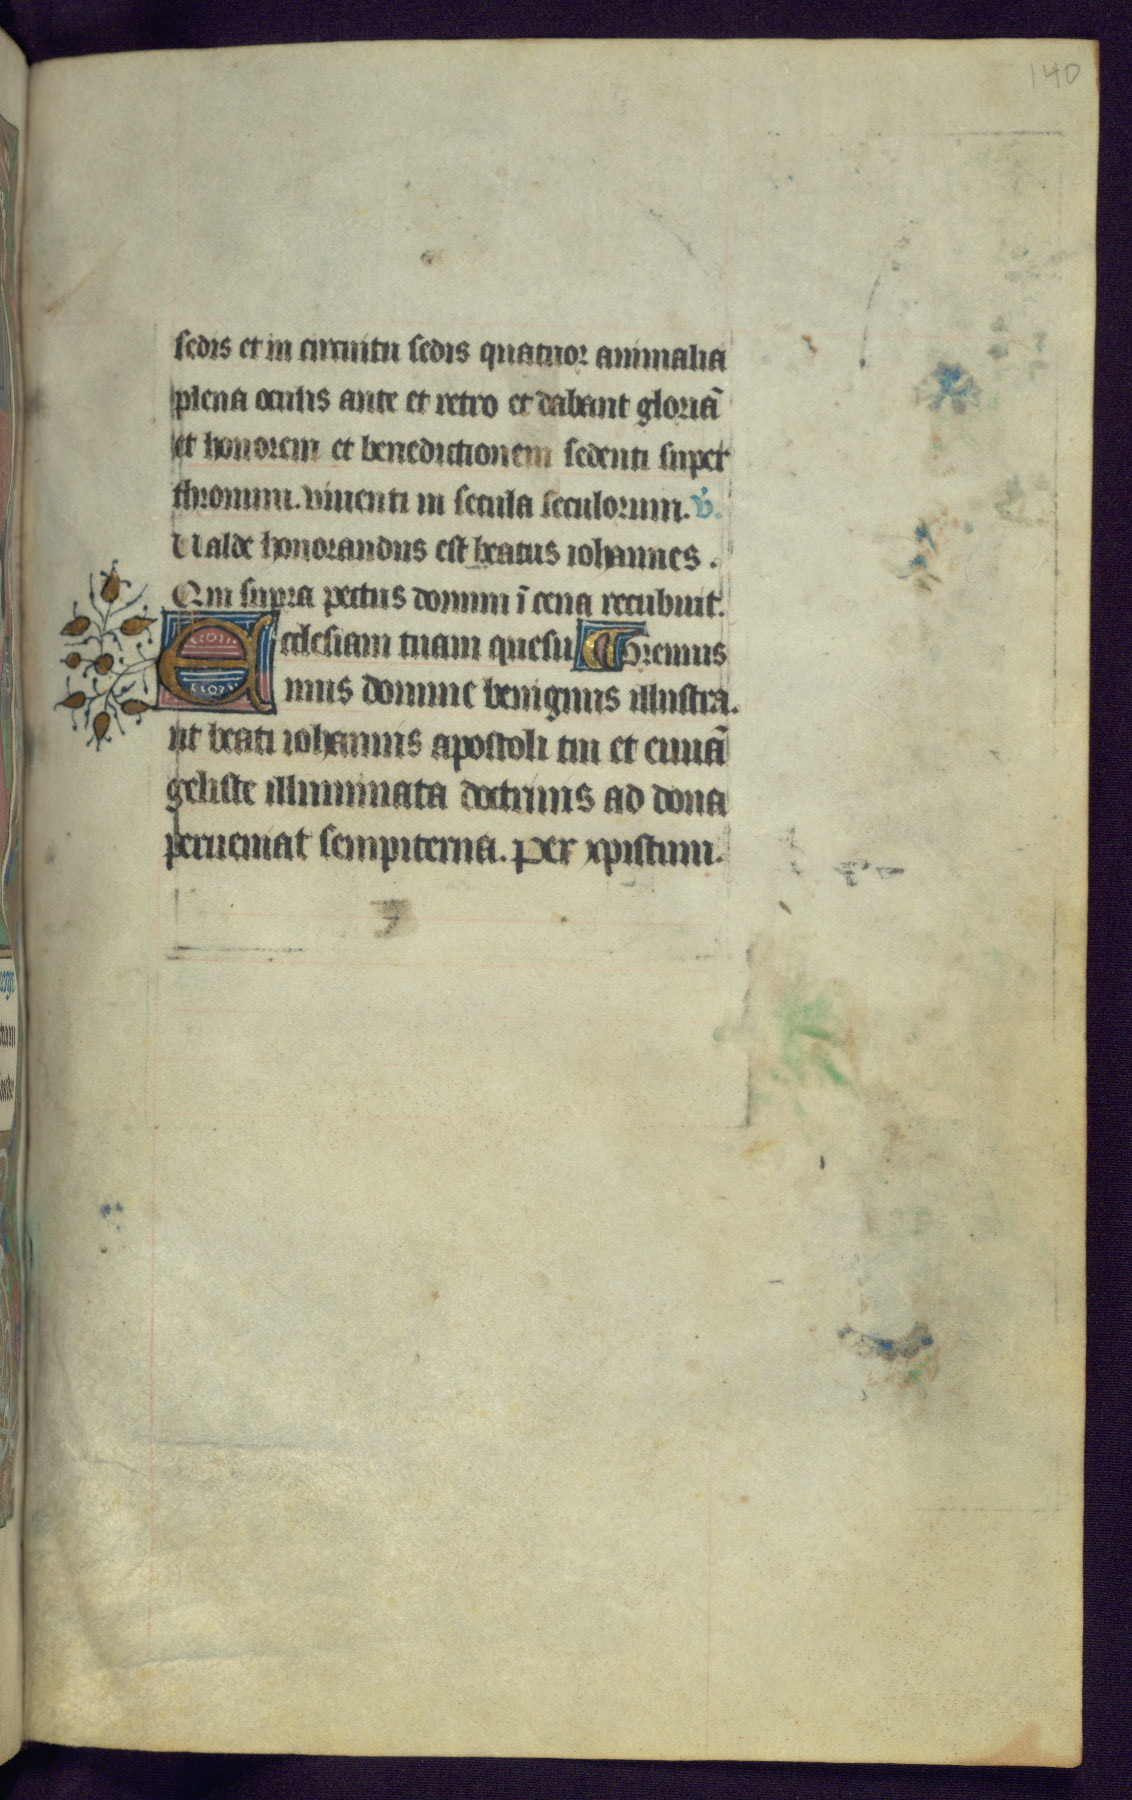 140
sedis et in circuitu sedis quatuor animalia
plena oculis ante et retro et dabant gloriã
et honorem et benedictionem sedenti super
thronum. viuenti in secula seculorum. v̉.
Ualde honorandus est beatus iohannes.
Qui supra pectus domini ĩ cena recubuit.
Ecclesiam tuam quesu Oremus
mus domine benignus illustra.
ut beati iohannis apostoli tui et euuã
geliste illuminata doctrinis ad dona
perueniat sempiterna. Per xpistum.